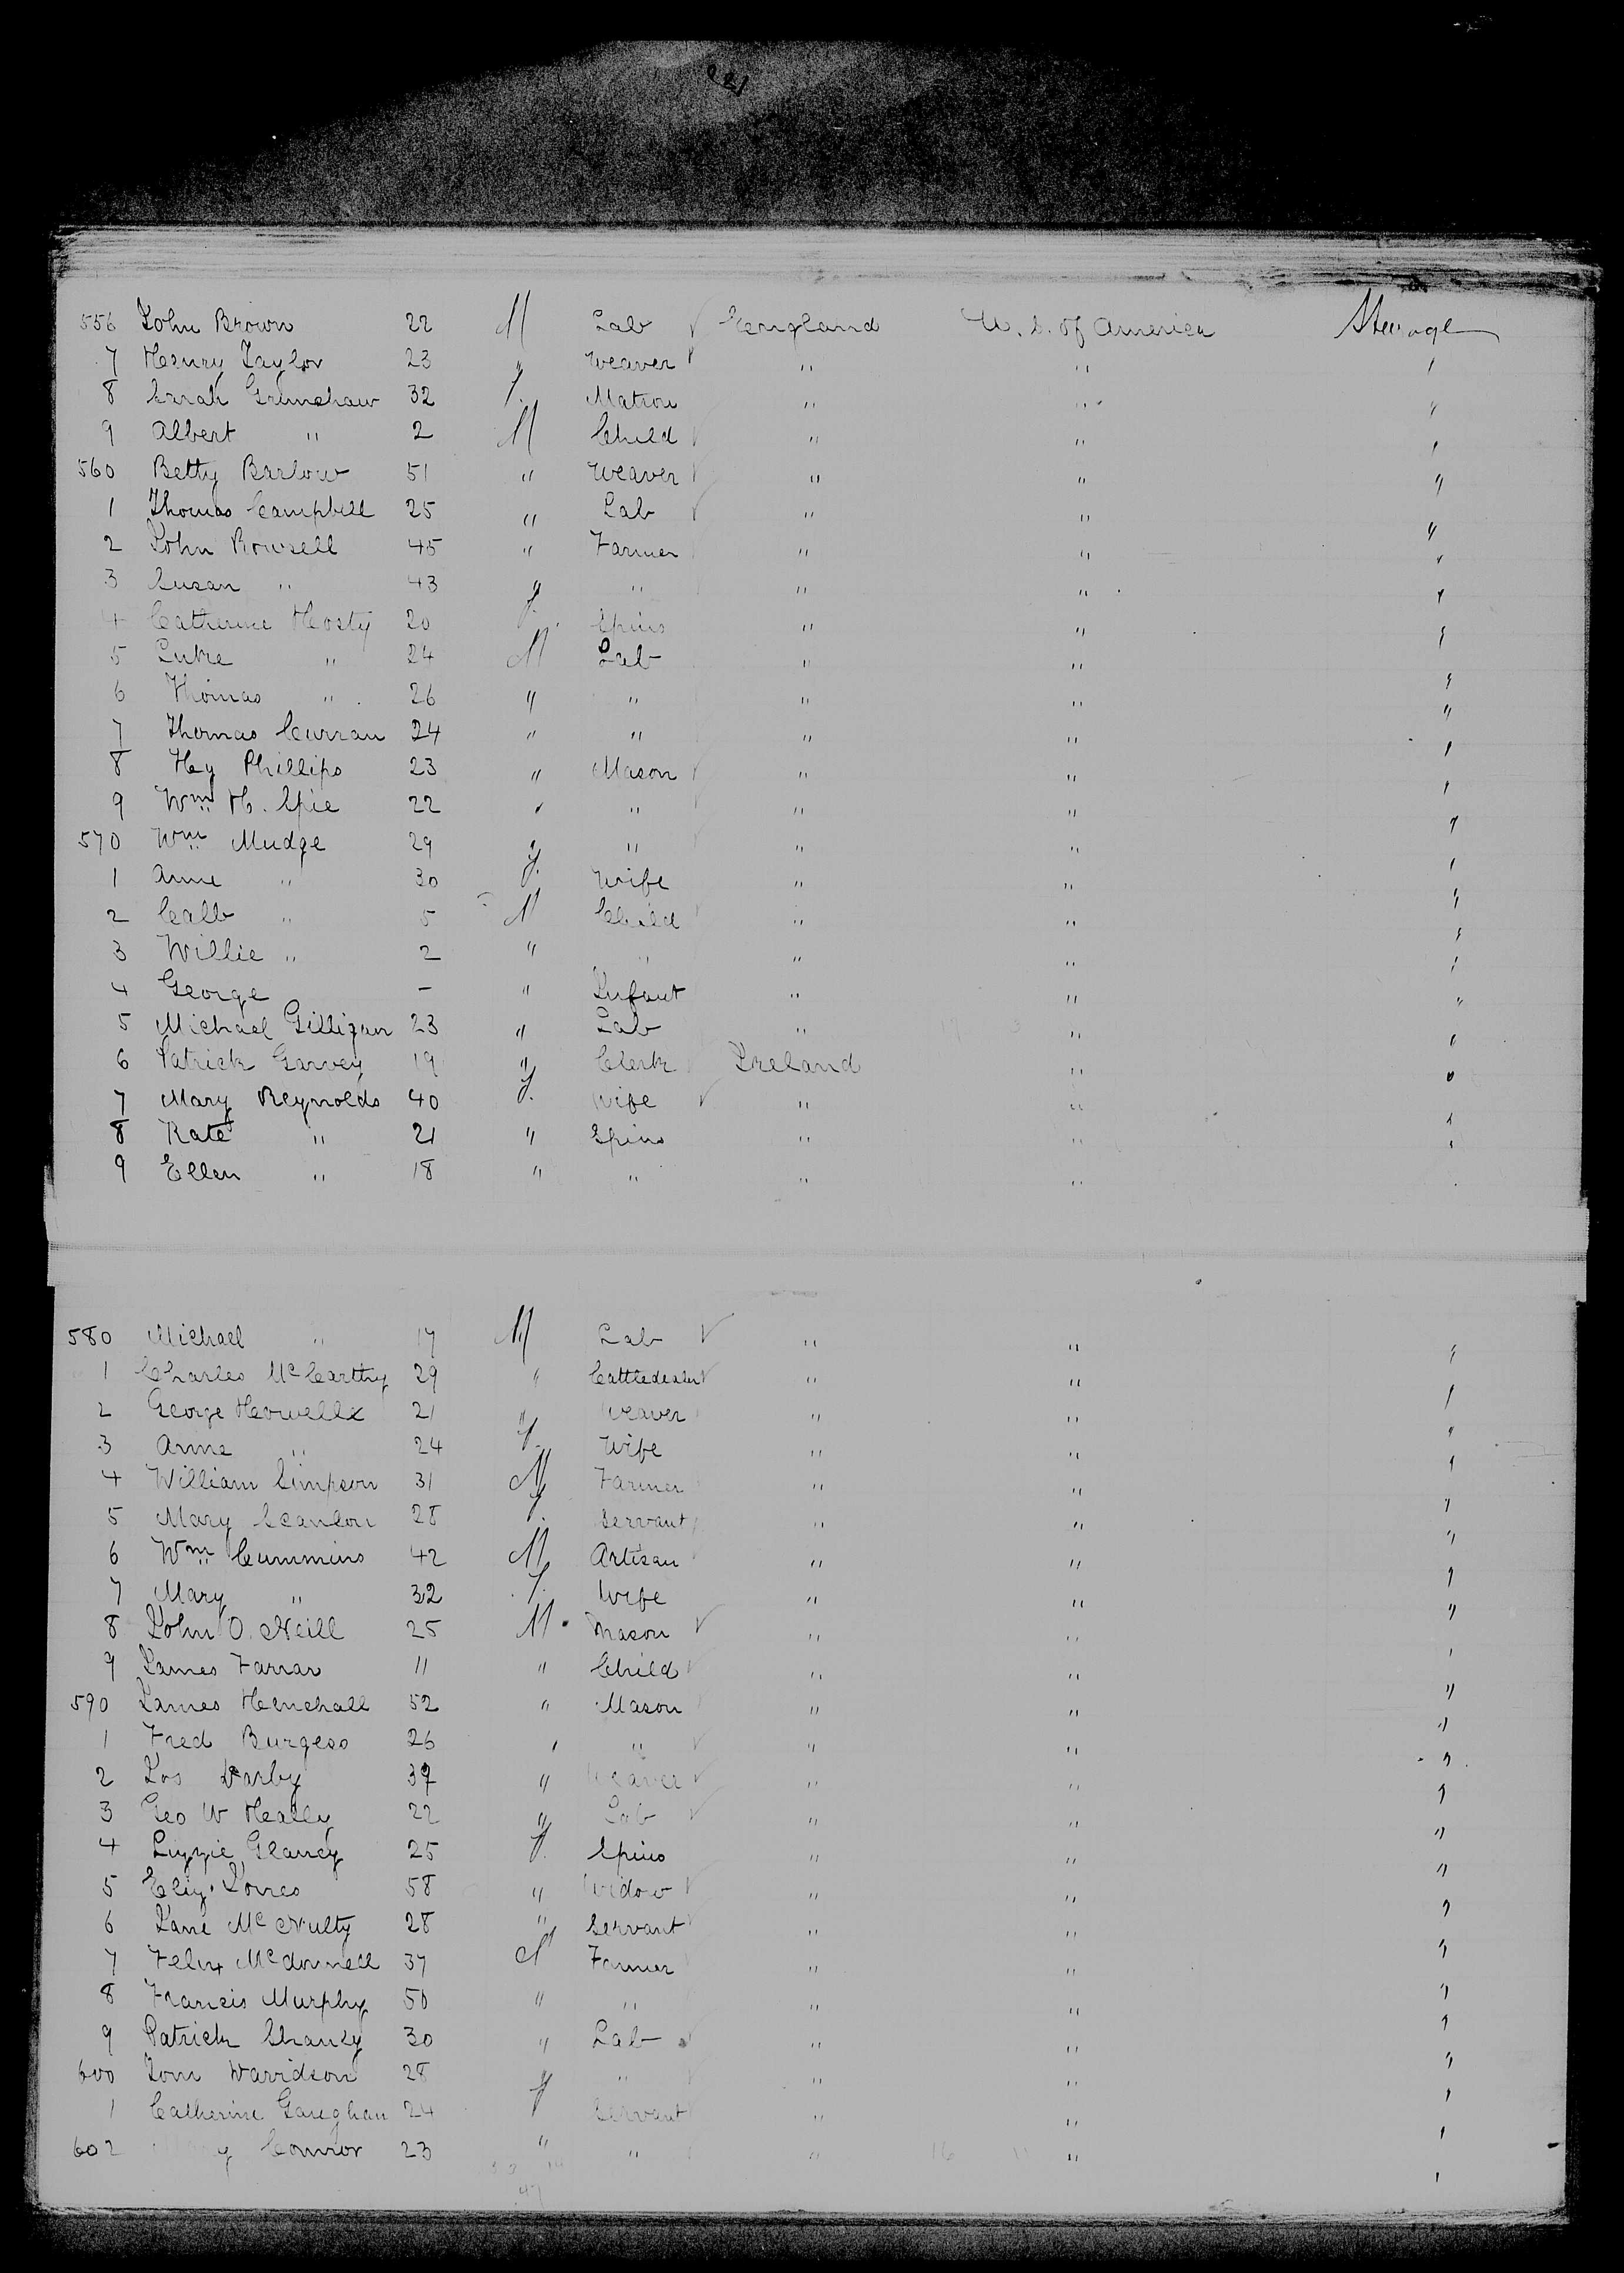 221
556 John Brown 22 M Lab England U. S. of America Steerage
7 Henry Taylor 23 " Weaver " " "
8 Sarah Grimshaw 32 F. Matron " " "
9 Albert " 2 M Child " " "
560 Betty Barlow 51 " Weaver " " "
1 Thomas Campbell 25 " Lab " " "
2 John Rowsell 45 " Farmer " " "
3 Susan " 43 F. " " " "
4 Catherine Hosty 20 F. Spins " " "
5 Luke " 24 M Lab " " "
6 Thomas " 26 " " " " "
7 Thomas Curran 24 " " " " "
8 Hy Phillips 23 " Mason " " "
9 Wm H. Spie 22 " " " " "
570 Wm Mudge 29 " " " " "
1 Anne " 30 F. Wife " " "
2 Calb " 5 M Child " " "
3 Willie " 2 " " " " "
4 George - " Infant " " "
5 Michael Gilligan 23 " Lab " " "
6 Patrick Garvey 19 " Clerk Ireland " "
7 Mary Reynolds 40 F. Wife " " "
8 Kate " 21 " Spins " " "
9 Ellen " 18 " " " " "
580 Michael " 17 M Lab " " "
1 Charles McCarthy 29 " Cattledealer " " "
2 George Howells 21 " Weaver " " "
3 Anne " 24 F. Wife " " "
4 William Simpson 31 M Farmer " " "
5 Mary Scanlon 28 F. Servant " " "
6 Wm Cummins 42 M Artisan " " "
7 Mary " 32 F. Wife " " "
8 John O. Neill 25 M Mason " " "
9 James Farrar 11 " Child " " "
590 James Henchall 52 " Mason " " "
1 Fred Burgess 26 " " " " "
2 Jos Darby 39 " Weaver " " "
3 Geo W Heally 22 " Lab " " "
4 Lizzie Glancy 25 F. Spins " " "
5 Eliz. Jones 58 " Widow " " "
6 Jane McNulty 28 " Servant " " "
7 Felix McDonnell 37 M Farmer " " "
8 Francis Murphy 50 " " " " "
9 Patrick Shanly 30 " Lab " " "
600 Tom Davidson 28 " " " " "
1 Catherine Gaughan 24 F Servant " " "
602 Connor 23 " " " " "
47